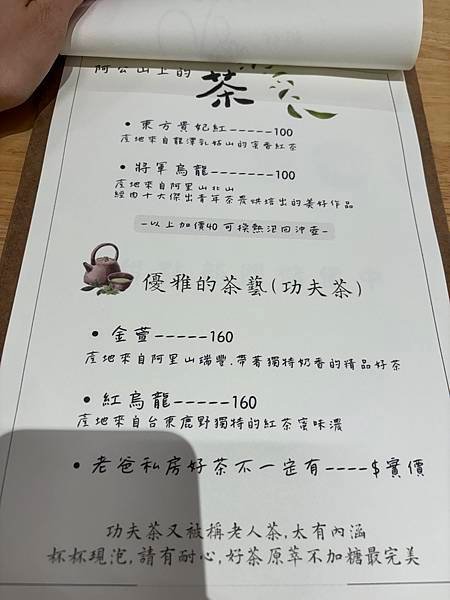 阿公山上的
茶
• 東方貴妃紅-----100
產地來自龍潭乳姑山的蜜香紅茶
• 將軍烏龍-------100
產地來自阿里山北山
經由十大傑出青年茶農烘培出的美好作品
-以上加價40可換熱泡回沖壺-
優雅的茶藝(功夫茶)
• 金萱-----160
產地來自阿里山瑞豐.帶著獨特奶香的精品好茶
• 紅烏龍-----160
產地來自台東鹿野獨特的紅茶蜜味濃
• 老爸私房好茶不一定有----$實價
功夫茶又被稱老人茶,太有內涵
杯杯現泡,請有耐心,好茶原萃不加糖最完美